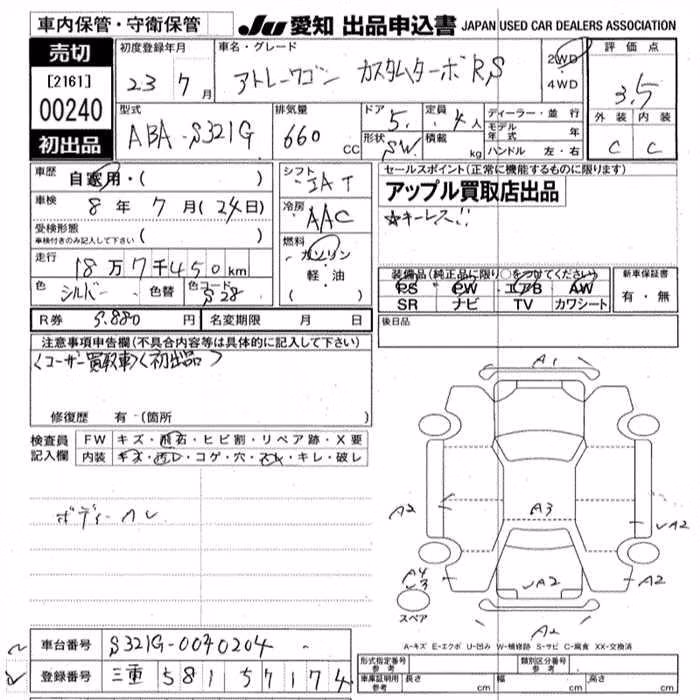 車内保管・守衛保管
JU 愛知 出品申込書 JAPAN USED CAR DEALERS ASSOCIATION
売切
[2161]
00240
初出品
初度登録年月
23 7月
車名・グレード
アトレーワゴン カスタムターボRS
2WD
4WD
評価点
3.5
外装 内装
C C
型式
ABA-S321G
排気量
660 CC
ドア 5
形状 SW
定員 4人
積載 kg
ディーラー・並行
モデル年式 年
ハンドル 左・右
車歴
自家用・( )
車検
8年 7月(24日)
受検形態
車検付きのみ記入して下さい ( )
走行
18万7千450km
色
シルバー
色替
色コード
S28
シフト
IAT
冷房
AAC
燃料
ガソリン
軽・油
( )
セールスポイント(正常に機能するものに限ります)
アップル買取店出品
☆キーレス!!
装備品(純正品に限り○をつけてください)
PS PW エアB AW
SR ナビ TV カワシート
新車保証書
有・無
後日品
R券 9.880円
名変期限 月 日
注意事項申告欄(不具合内容等は具体的に記入して下さい)
〈ユーザー買取車〉〈初出品〉
修復歴 有・(箇所 )
検査員記入欄
FW キズ・飛石・ヒビ割・リペア跡・X要
内装 キズ・汚レ・コゲ・穴・スレ・キレ・破レ
A1
A2
A3
A2
A4
A2
A2
A2
スペア
A-キズ E-エクボ U-凹み W-補修跡 S-サビ C-腐食 XX-交換済
車台番号 S321G-0040204
登録番号 三重 581 57174
形式指定番号
参考
類別区分番号
参考
車庫証明用
参考
長さ cm
幅 cm
高さ cm